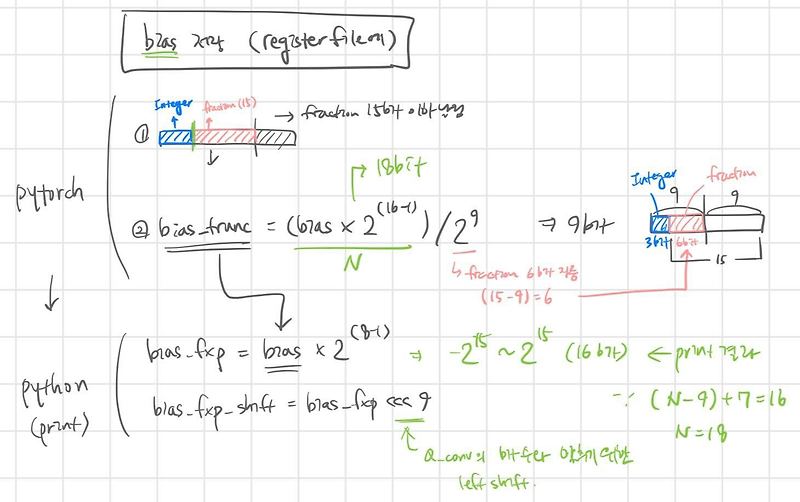 bias 저장 (register file에)
Integer
fraction (15)
① → fraction 15bit 이하 버림
→ 18bit
pytorch
② bias_trunc = (bias × 2^(16-1)) / 2^9 ⇒ 9bit
N
↳ fraction 6bit 저장
(15-9) = 6
Integer
fraction
9
9
3bit
6bit
15
↓
python
(print)
bias_fxp = bias × 2^(8-1) ⇒ -2^15 ~ 2^15 (16bit) ← print 결과
bias_fxp_shift = bias_fxp <<< 9
∵ (N-9)+7=16
N=18
Q_conv의 bit수와 맞추기 위한
left shift.